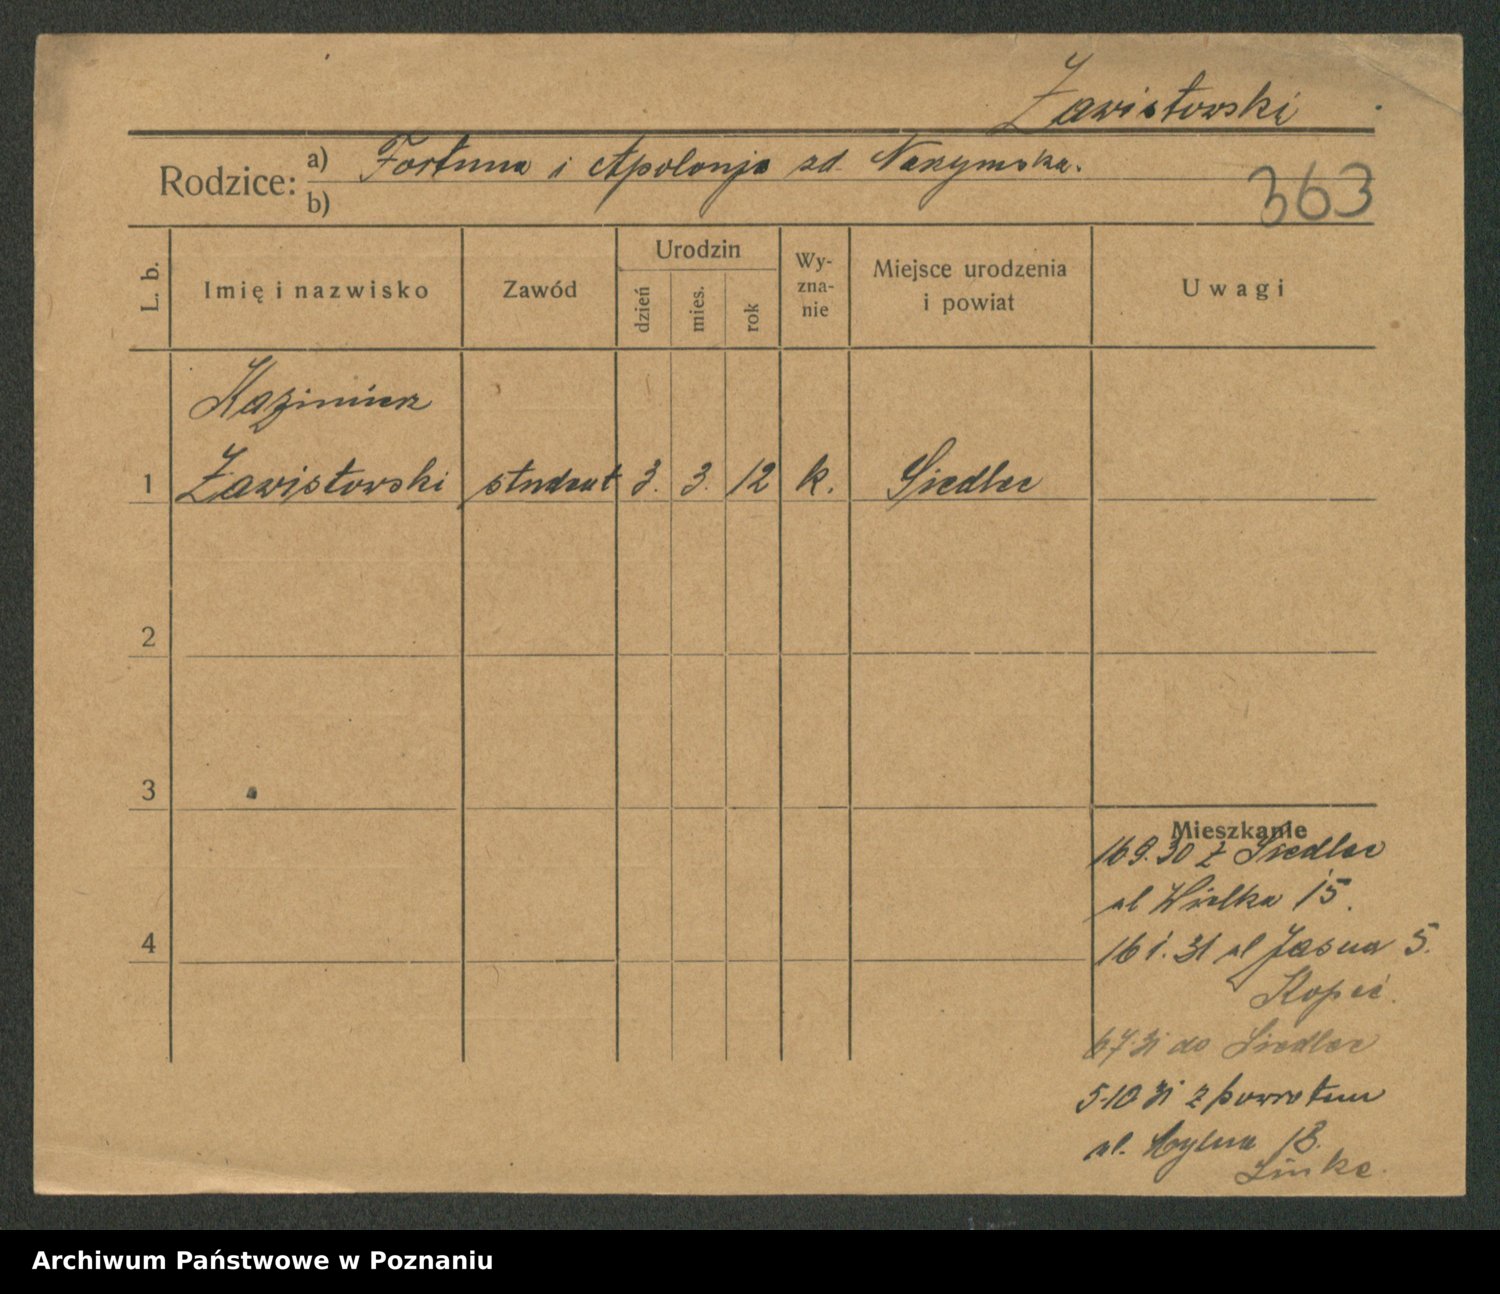 Zawistowski
Rodzice: a) Fortuna i Apolonja zd. Narymska.
b)
363
L. b. Imię i nazwisko Zawód Urodzin dzień mies. rok Wyznanie Miejsce urodzenia i powiat Uwagi
Kazimierz
1 Zawistowski student 3. 3. 12 k. Siedlec
2
3
Mieszkanie
16 9. 30 z Siedlec
ul Wielka 15.
4
16 1. 31 ul Jasna 5.
Kopeć.
6 7 31 do Siedlec
5-10 31 z powrotem
ul. 18.
Linke.
Archiwum Państwowe w Poznaniu